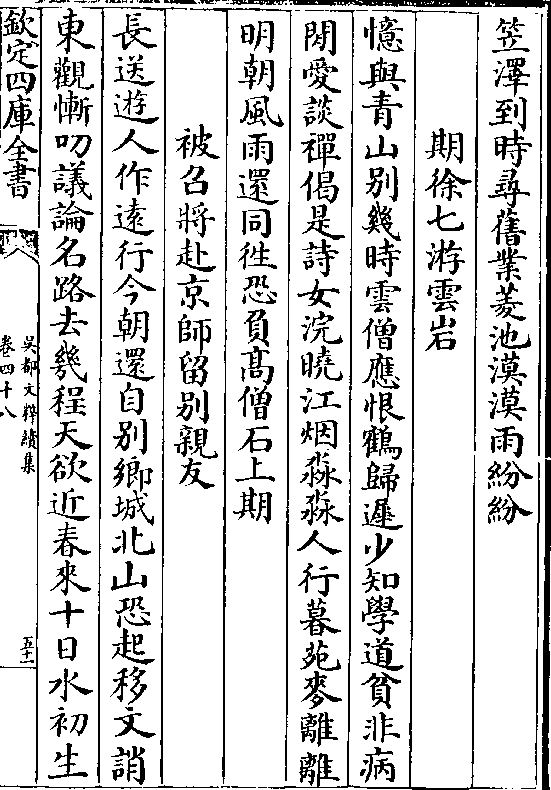 笠澤到時尋舊業菱池漠漠雨紛紛
期徐七游雲岩
憶與青山別幾時雲僧應恨鶴歸遲少知學道貧非病
閒愛談禪偈是詩女浣曉江烟淼淼人行暮苑麥離離
明朝風雨還同徃恐負髙僧石上期
被召將赴京師留别親友
長送遊人作遠行今朝還自别鄉城北山恐起移文誚
東觀慚叨議論名路去幾程天欲近春來十日水初生
欽定四庫全書
吳都文粹續集
卷四十八
五十一